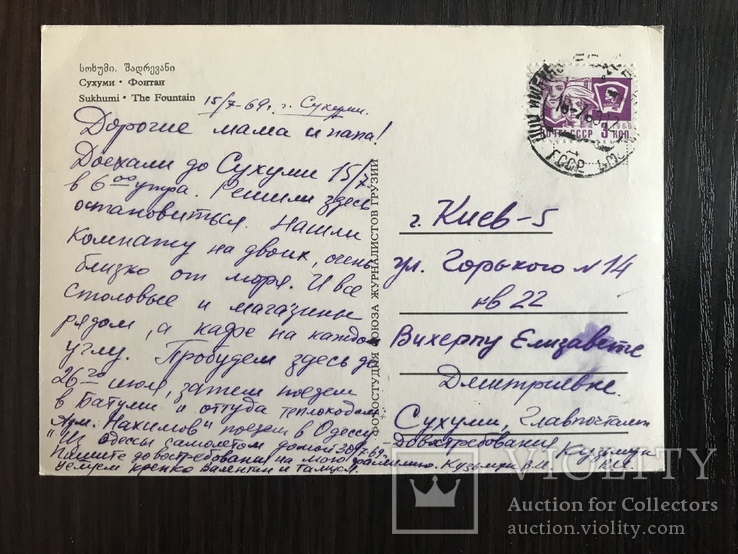 სოხუმი. შადრევანი
Сухуми • Фонтан
Sukhumi • The Fountain
15/7-69г. г. Сухуми.
Дорогие мама и папа!
Доехали до Сухуми 15/7
в 6⁰⁰ утра. Решили здесь
остановиться. Нашли
комнату на двоих, очень
близко от моря. И все
столовые и магазины
рядом, а кафе на каждом
углу. Пробудем здесь до
26го июля, затем поедем
в Батуми и оттуда теплоходом
"Адм. Нахимов" поедем в Одессу
Из Одессы самолетом домой 30/7-69
Пишите до востребования на мою фамилию. Кузьмук В.И.
Целуем крепко Валентин и
ФОТОСТУДИЯ СОЮЗА ЖУРНАЛИСТОВ ГРУЗИИ
ПОЧТА СССР 3 КОП
г. Киев-5
ул. Горького N 14
кв 22
Вихерпу Елизавете
Дмитриевне.
Сухуми, Главпочтамт
до востребования
VIOLITY
Auction for Collectors
auction.violity.com